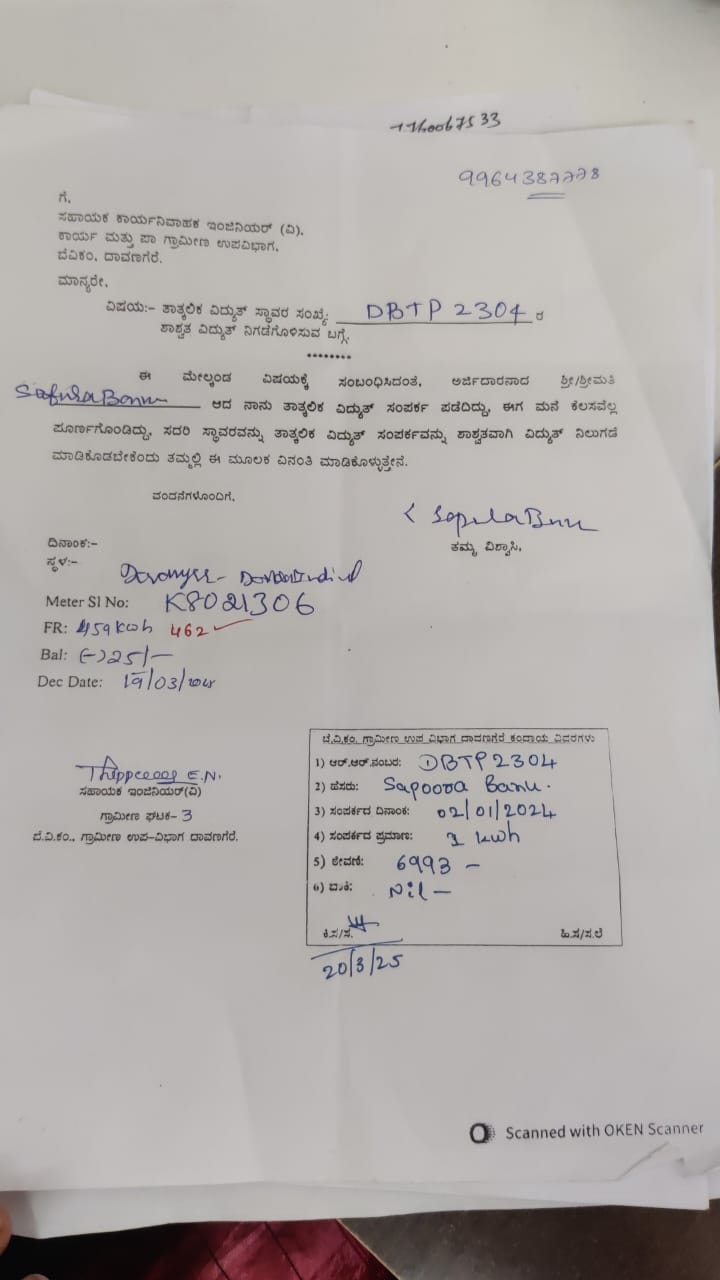 1160067533
9964387778
ಗೆ,
ಸಹಾಯಕ ಕಾರ್ಯನಿರ್ವಾಹಕ ಇಂಜಿನಿಯರ್ (ವಿ),
ಕಾರ್ಯ ಮತ್ತು ಪಾ ಗ್ರಾಮೀಣ ಉಪವಿಭಾಗ,
ಬೆವಿಕಂ, ದಾವಣಗೆರೆ.
ಮಾನ್ಯರೇ,
ವಿಷಯ:- ತಾತ್ಕಲಿಕ ವಿದ್ಯುತ್ ಸ್ಥಾವರ ಸಂಖ್ಯೆ: DBTP 2304 ರ
ಶಾಶ್ವತ ವಿದ್ಯುತ್ ನಿಗಡೆಗೊಳಿಸುವ ಬಗ್ಗೆ.
********
ಈ ಮೇಲ್ಕಂಡ ವಿಷಯಕ್ಕೆ ಸಂಬಂಧಿಸಿದಂತೆ, ಅರ್ಜಿದಾರನಾದ ಶ್ರೀ/ಶ್ರೀಮತಿ
SafulaBanu ಆದ ನಾನು ತಾತ್ಕಲಿಕ ವಿದ್ಯುತ್ ಸಂಪರ್ಕ ಪಡೆದಿದ್ದು, ಈಗ ಮನೆ ಕೆಲಸವೆಲ್ಲ
ಪೂರ್ಣಗೊಂಡಿದ್ದು, ಸದರಿ ಸ್ಥಾವರವನ್ನು ತಾತ್ಕಲಿಕ ವಿದ್ಯುತ್ ಸಂಪರ್ಕವನ್ನು ಶಾಶ್ವತವಾಗಿ ವಿದ್ಯುತ್ ನಿಲುಗಡೆ
ಮಾಡಿಕೊಡಬೇಕೆಂದು ತಮ್ಮಲ್ಲಿ ಈ ಮೂಲಕ ವಿನಂತಿ ಮಾಡಿಕೊಳ್ಳುತ್ತೇನೆ.
ವಂದನೆಗಳೊಂದಿಗೆ,
ತಮ್ಮ ವಿಶ್ವಾಸಿ,
ದಿನಾಂಕ:-
ಸ್ಥಳ:-
Meter Sl No: K8021306
FR: 459 kwh 462
Bal: (-) 25/-
Dec Date: 19/03/2025
E.N.
ಸಹಾಯಕ ಇಂಜಿನಿಯರ್(ವಿ)
ಗ್ರಾಮೀಣ ಘಟಕ- 3
ಬೆ.ವಿ.ಕಂ., ಗ್ರಾಮೀಣ ಉಪ-ವಿಭಾಗ ದಾವಣಗೆರೆ.
ಬೆ.ವಿ.ಕಂ. ಗ್ರಾಮೀಣ ಉಪ ವಿಭಾಗ ದಾವಣಗೆರೆ ಕಂದಾಯ ವಿವರಗಳು
1) ಆರ್.ಆರ್.ನಂಬರ: DBTP 2304
2) ಹೆಸರು: Sapoora Banu.
3) ಸಂಪರ್ಕದ ದಿನಾಂಕ: 02/01/2024
4) ಸಂಪರ್ಕದ ಪ್ರಮಾಣ: 1 kwh
5) ಠೇವಣಿ: 6993 -
6) ಬಾಕಿ: Nil -
ಕಿ.ಸ/ಸ. ಹಿ.ಸ/ಸ.ಲೆ
20/3/25
Scanned with OKEN Scanner